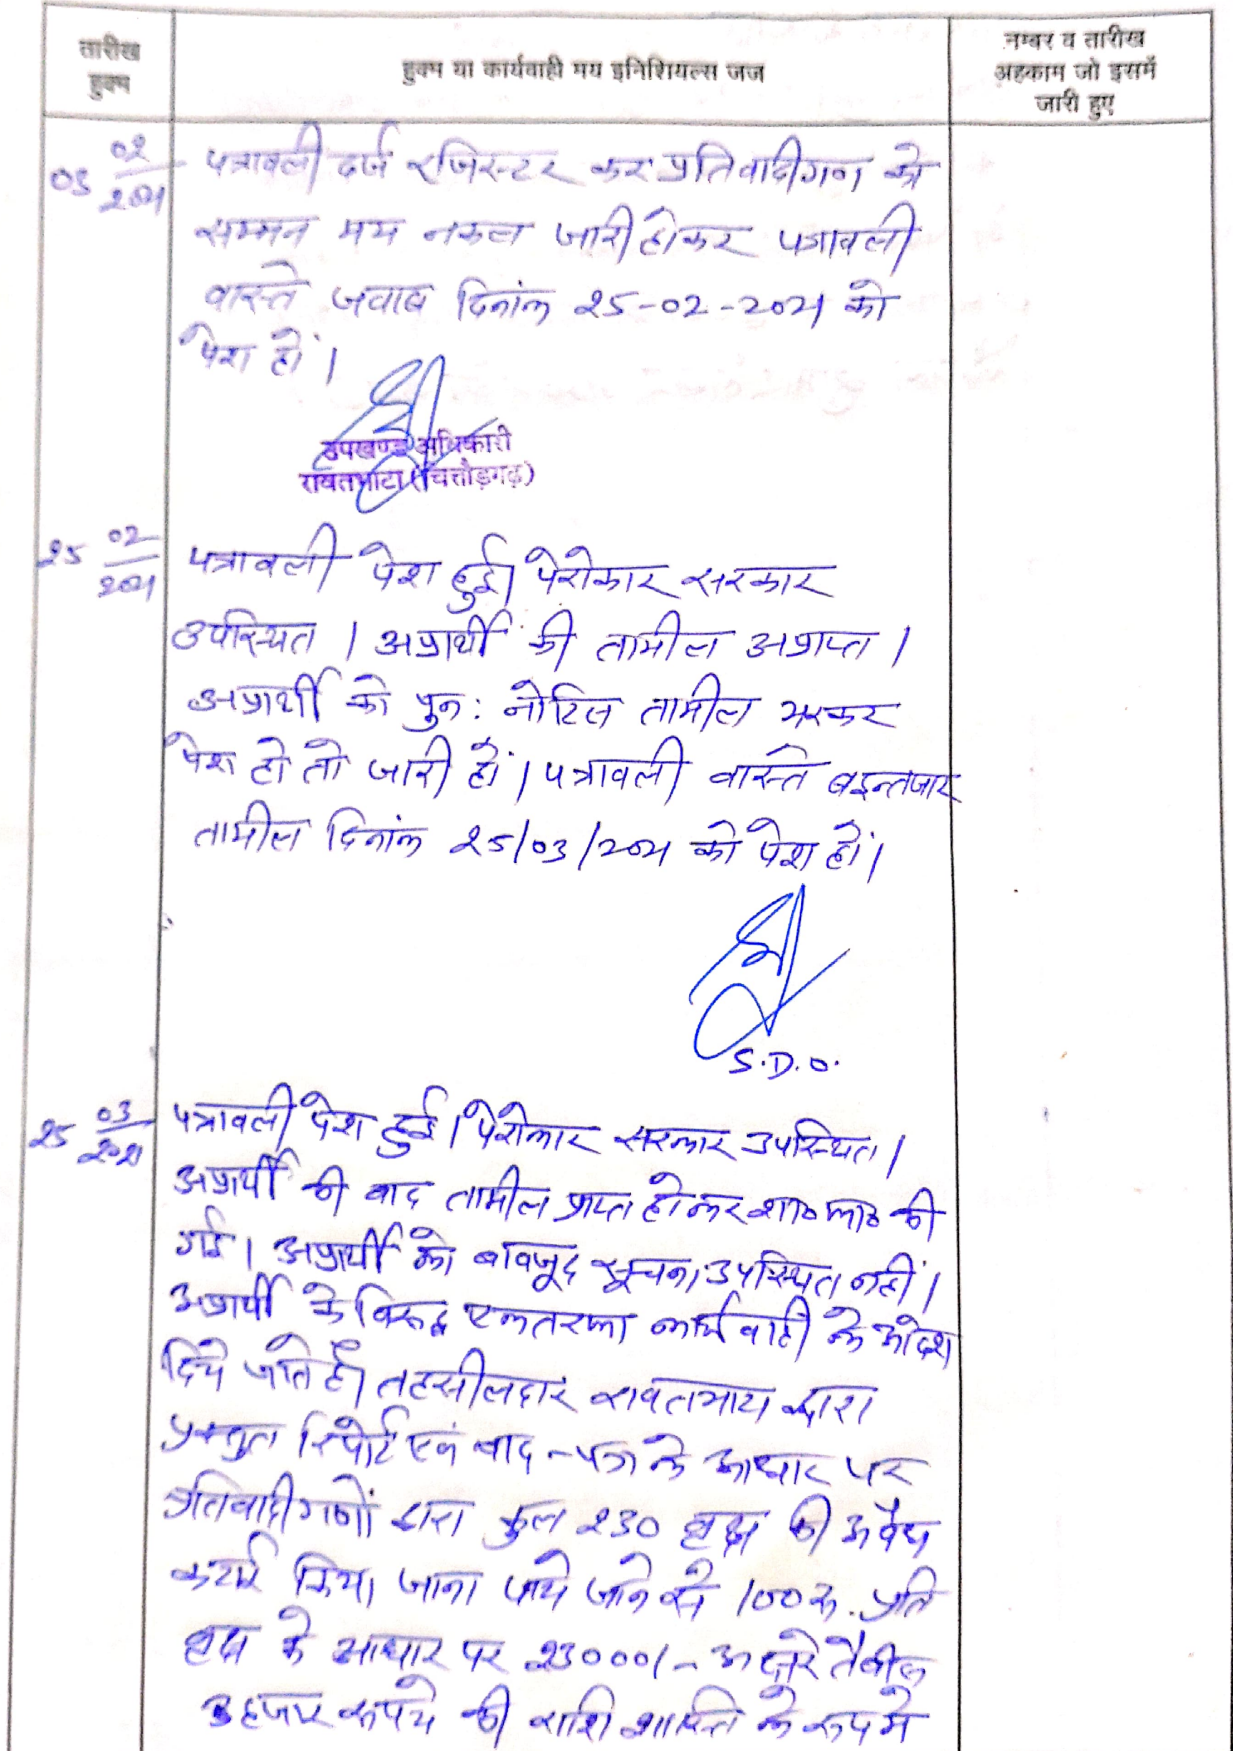 तारीख
हुक्म
हुक्म या कार्यवाही मय इनिशियल्स जज
नम्बर व तारीख
अहकाम जो इसमें
जारी हुए
03 02/2021
पत्रावली दर्ज रजिस्टर कर प्रतिवादीगण को
सम्मन मय नकल जारी होकर पत्रावली
वास्ते जवाब दिनांक 25-02-2021 को
पेश हों।
उपखण्ड अधिकारी
रावतभाटा (चित्तौड़गढ़)
25 02/2021
पत्रावली पेश हुई। पेरोकार सरकार
उपस्थित। अप्रार्थी की तामील अप्राप्त।
अप्रार्थी को पुन: नोटिस तामील भरकर
पेश हो तो जारी हों। पत्रावली वास्ते बइन्तजार
तामील दिनांक 25/03/2021 को पेश हों।
S.D.O.
25 03/2021
पत्रावली पेश हुई। पेरोकार सरकार उपस्थित।
अप्रार्थी की बाद तामील प्राप्त होकर शा० फा० की
गई। अप्रार्थी को बावजूद सूचना उपस्थित नहीं।
अप्रार्थी के विरूद्ध एकतरफा कार्यवाही के आदेश
दिये जाते है। तहसीलदार रावतभाटा द्वारा
प्रस्तुत रिपोर्ट एवं वाद-पत्र के आधार पर
प्रतिवादीगणों द्वारा कुल 230 वृक्ष की अवैध
कटाई किया जाना पाये जाने से 100 रू. प्रति
वृक्ष के आधार पर 23000/- अक्षरे तेबीस
हजार रूपये की राशि शास्ति के रूप मे